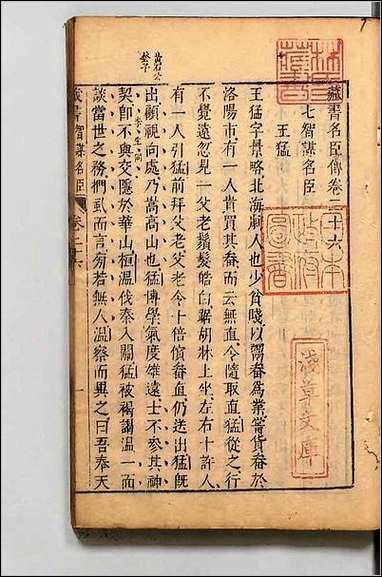 藏書名臣傳卷二十六
七智謀名臣
王猛
王猛字景略北海劇人也少貧賤以鬻畚為業嘗貨畚於
洛陽市有一人貴買其畚而云無直令隨取直從之行
不覺遠忽見一父老鬚髮皓白踞胡牀上坐左右十許人
有一人引猛前拜父老父老令十倍償畚直仍送出猛旣
出顧視向處乃嵩高山也猛博學氣度雄遠士不參其神
契卽不與交隱於華山桓溫伐奉入關猛被褐謁溫一面
談當世之務捫虱而言旁若無人溫察而異之曰吾奉天
藏書智謀名臣 卷二十六 一
黃石公
林氏藏書
日本政府圖書
淺草文庫